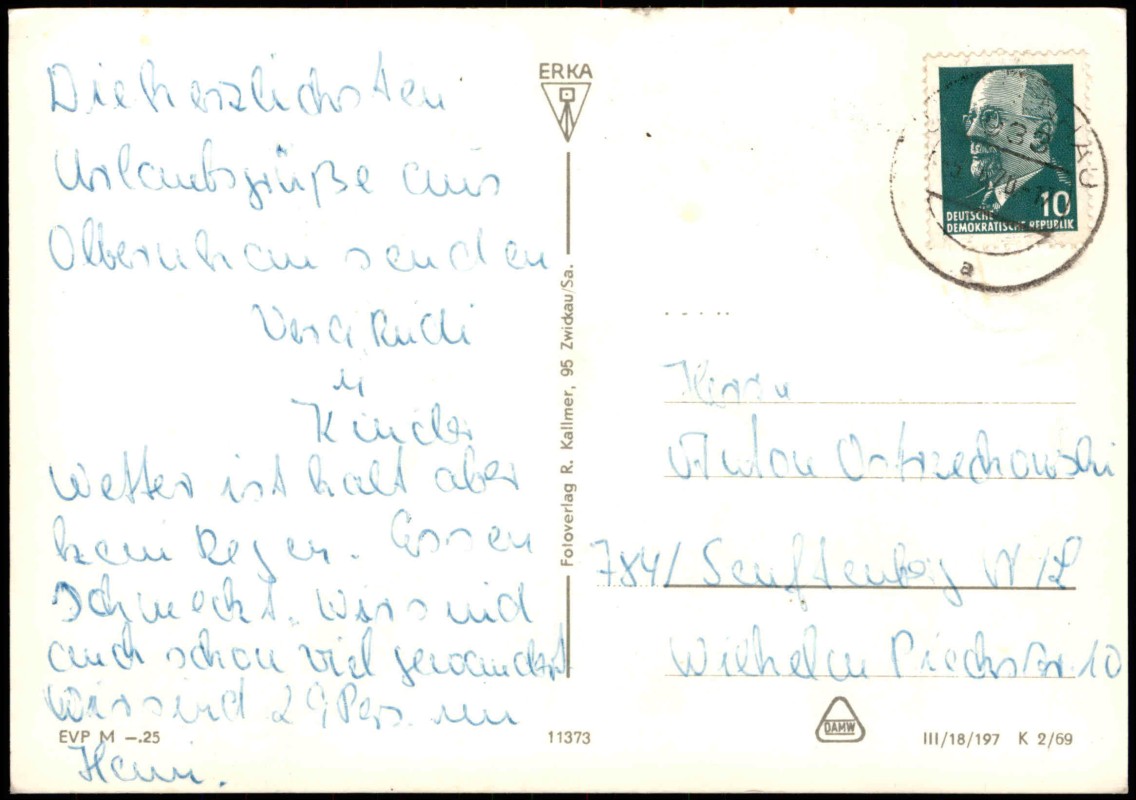 Die herzlichsten
Urlaubsgrüße aus
Olbernhau senden
Vera Rudi
u
Kinder
Wetter ist kalt aber
kein Regen. Essen
schmeckt. Wir sind
auch schon viel gewandert
Wir sind 29 Pers. im
Heim.
EVP M –.25
ERKA
Fotoverlag R. Kallmer, 95 Zwickau/Sa.
11373
10
DEUTSCHE
DEMOKRATISCHE REPUBLIK
933
a
Herrn
Anton Ostrzechowski
784/ Senftenberg N/L
Wilhelm Pieckstr. 10
DAMW
III/18/197 K 2/69